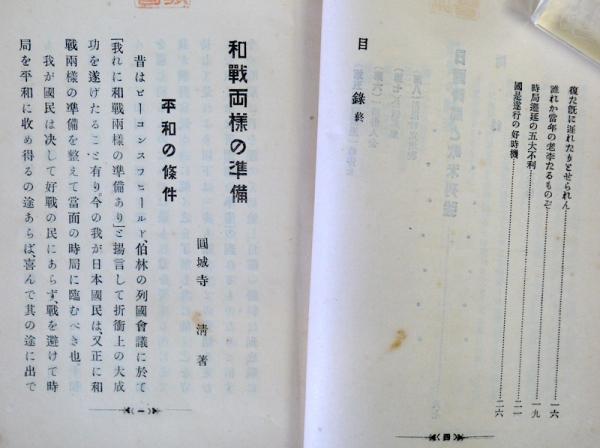 復た既に遅れたりとせられん……一六
誰れか當年の老李たるものぞ……一九
時局遷延の五大不利……二一
國是遂行の好時機……二六
目錄終
四
和戰両様の準備
圓城寺 清 著
平和の條件
昔はビーコンスフヒールド、伯林の列國會議に於て
「我れに和戰兩樣の準備あり」と揚言して折衝上の大成
功を遂げたること有り。今の我が日本國民は、又正に和
戰兩樣の準備を整えて當面の時局に臨むべき也。
我が國民は決して好戰の民にあらず、戰を避けて時
局を平和に收め得るの途あらば、喜んで其の途に出で
一